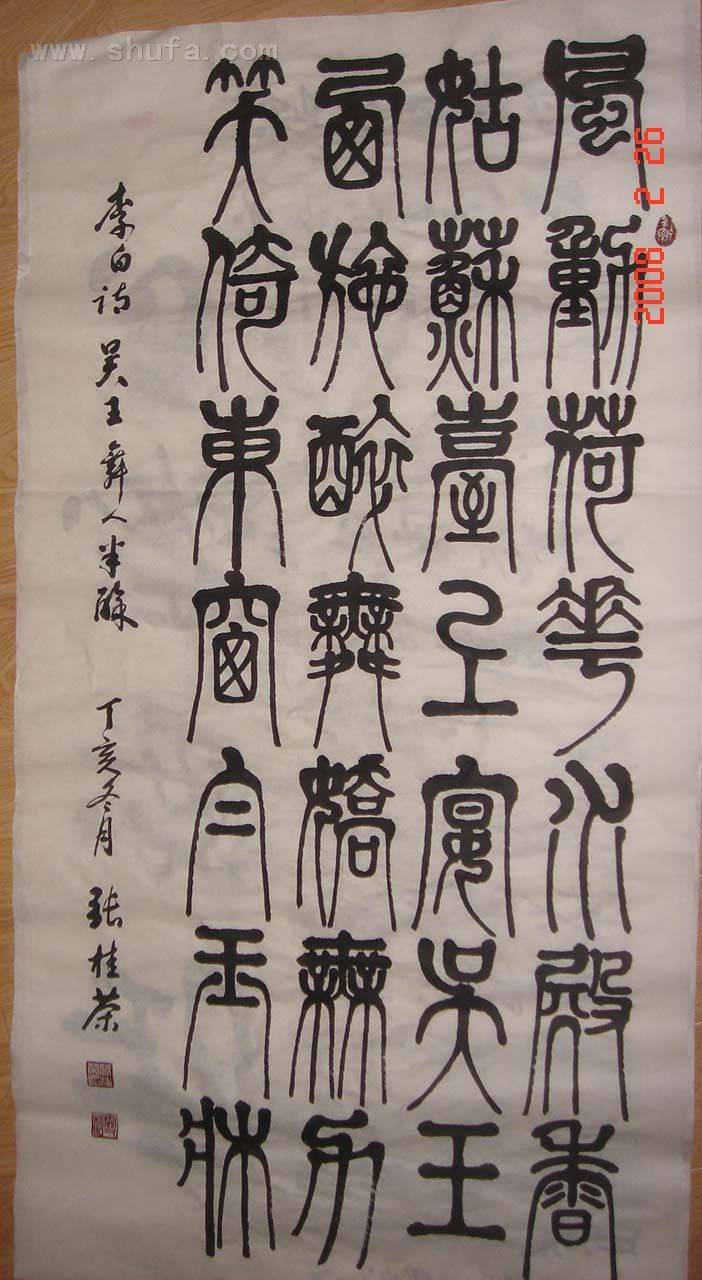 www.shufa.com
風動荷花水殿香
姑蘇臺上宴吳王
西施醉舞嬌無力
笑倚東窗白玉牀
李白诗 吴王舞人半醉 丁亥冬月 张桂荣
2008 2 26